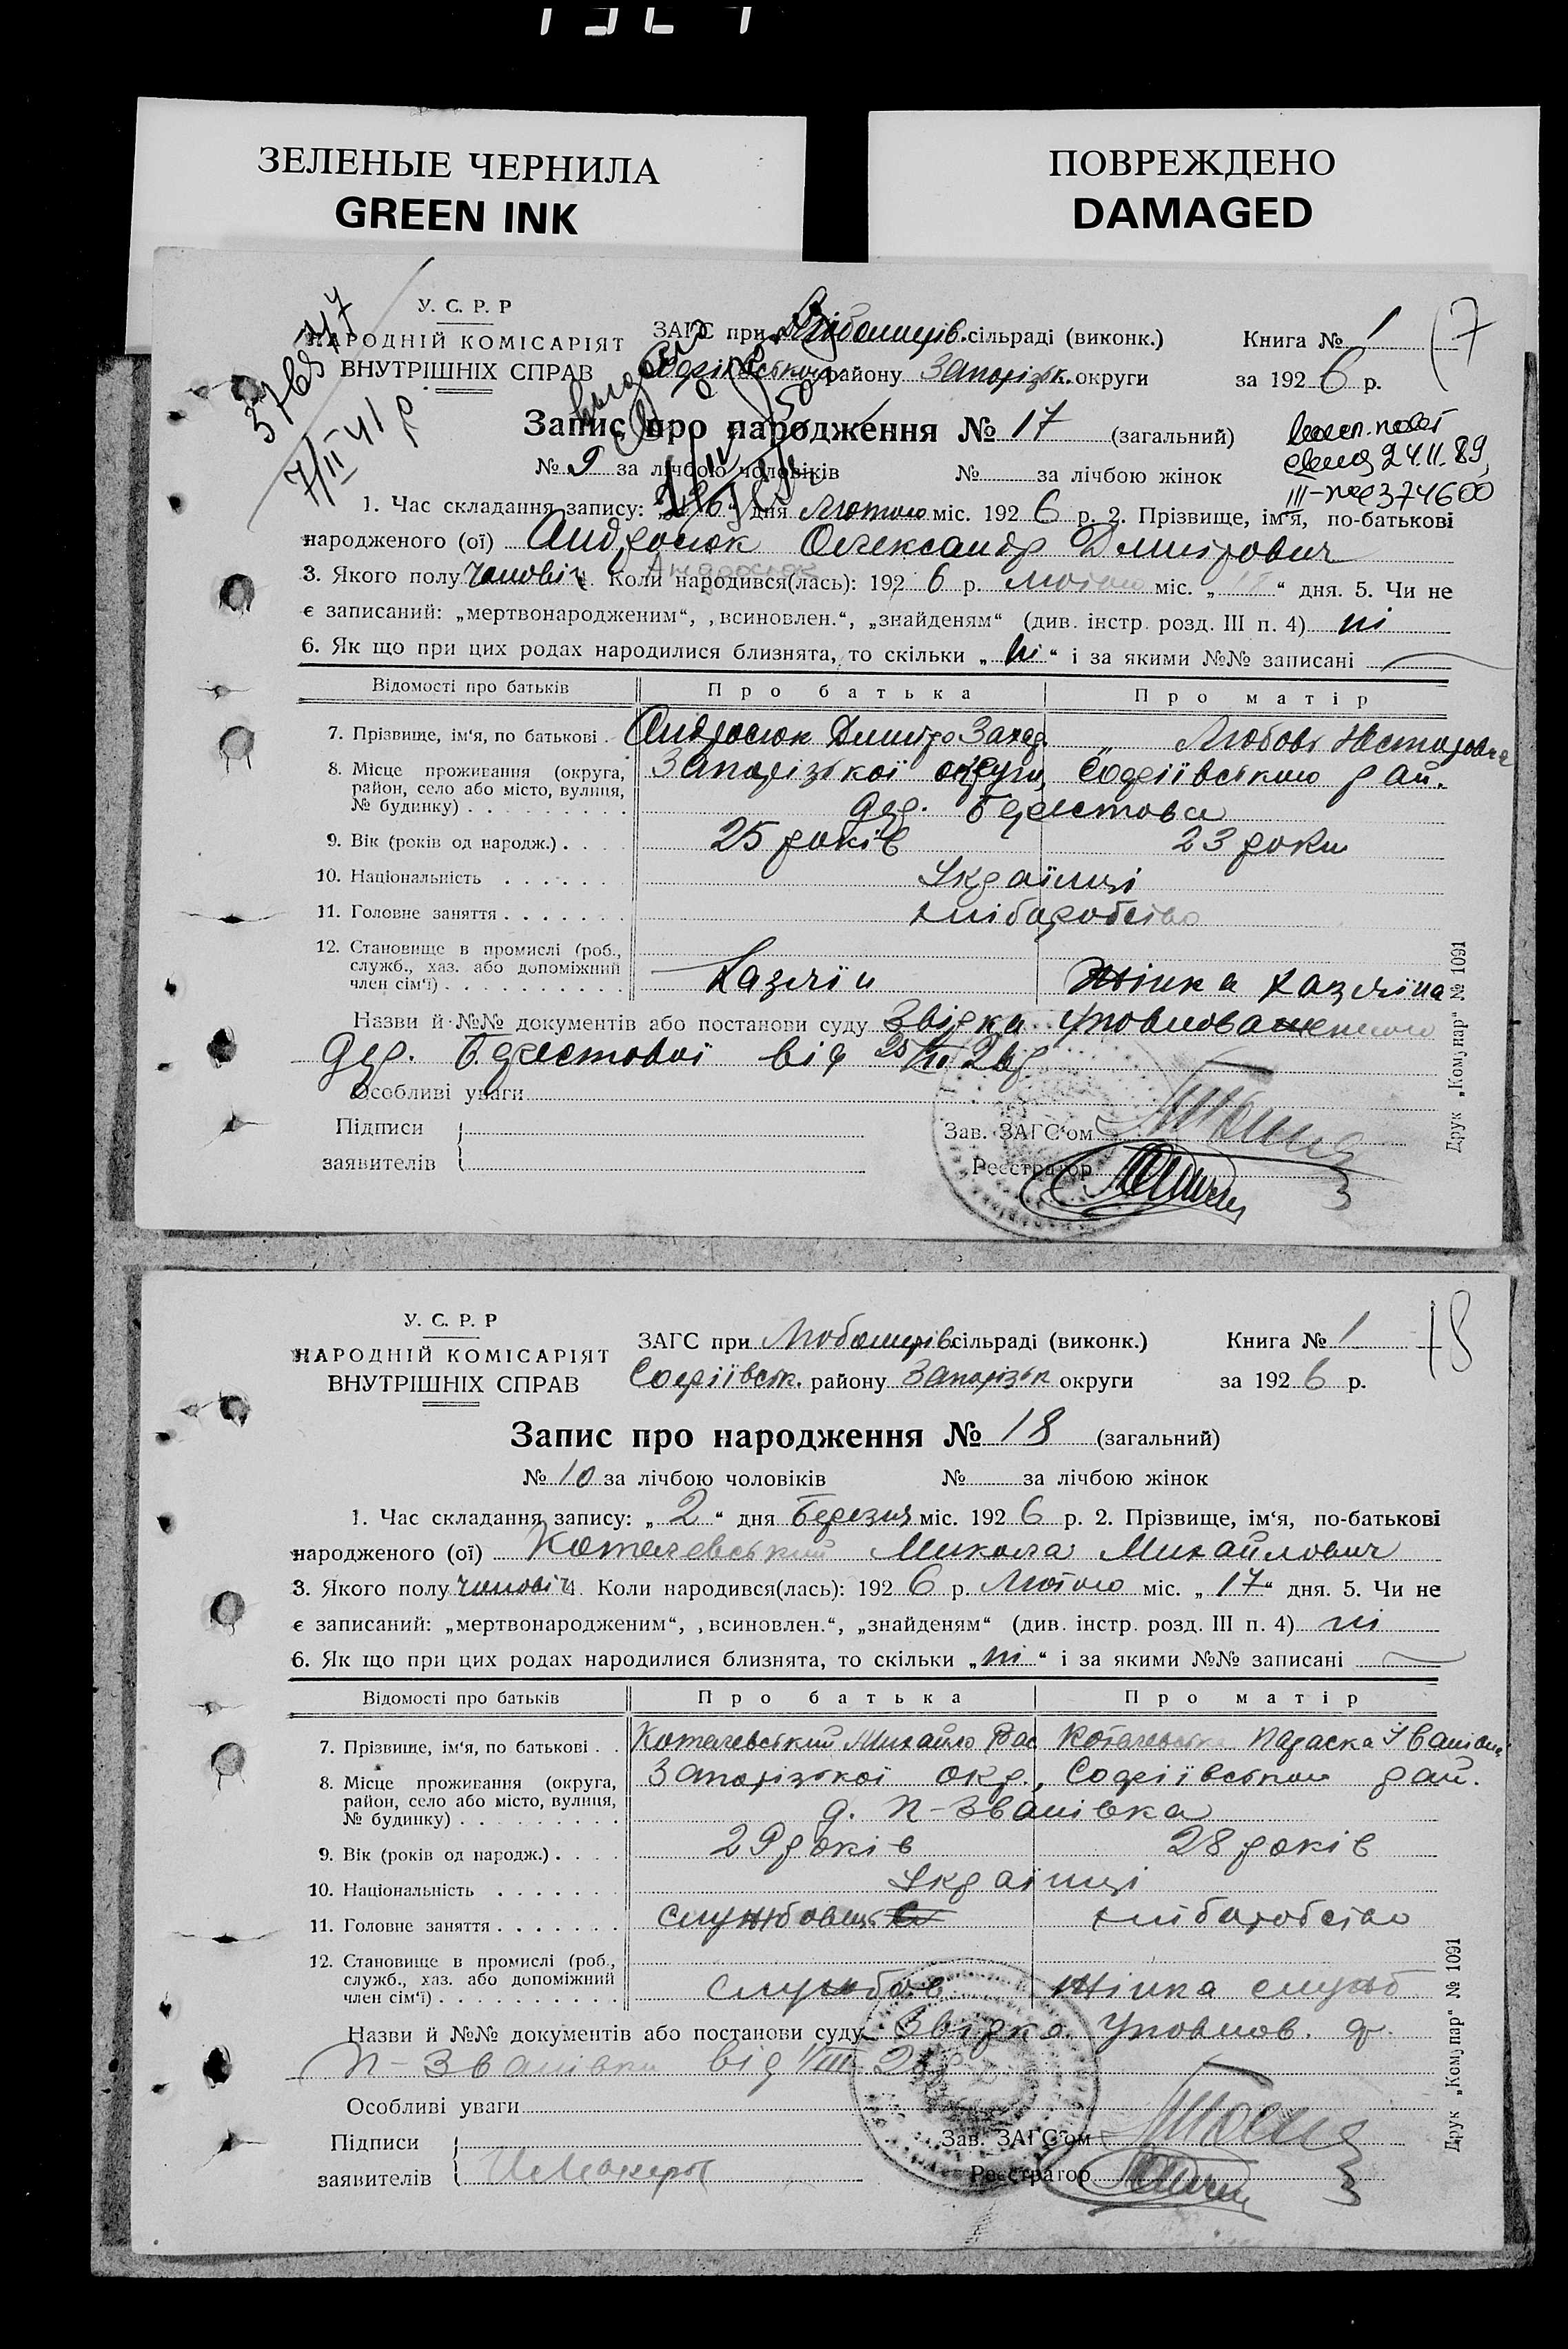 ЗЕЛЕНЫЕ ЧЕРНИЛА
GREEN INK
ПОВРЕЖДЕНО
DAMAGED
У. С. Р. Р
НАРОДНІЙ КОМІСАРІЯТ
ВНУТРІШНІХ СПРАВ
ЗАГС при сільраді (виконк.)
району Запорізьк. округи
Книга № 1
за 192 6 р.
17
Запис про народження № 17 (загальний)
№ 9 за лічбою чоловіків № за лічбою жінок
24.11.89
III- 374600
7/II 41 р
1. Час складання запису: „ “ дня Лютого міс. 192 6 р. 2. Прізвище, ім‘я, по-батькові
народженого (ої) Андросюк Олександр Дмитрович
Андросюк
3. Якого полу чоловіч 4. Коли народився(лась): 192 6 р. Лютого міс. „ “ дня. 5. Чи не
є записаний: „мертвонародженим“, „всиновлен.“, „знайденям“ (див. інстр. розд. III п. 4) ні
6. Як що при цих родах народилися близнята, то скільки „ ні “ і за якими №№ записані
Відомості про батьків Про батька Про матір
7. Прізвище, ім‘я, по батькові . Андросюк Дмитро Захар. „ Любовь Несторовна
8. Місце проживання (округа, район, село або місто, вулиця, № будинку) Запорізької округи, Софіївського рай.
дер. Берестова
9. Вік (років од народж.) 25 років 23 роки
10. Національність Українці
11. Головне заняття хліборобство
12. Становище в промислі (роб., служб., хаз. або допоміжний член сім‘ї) Хазяїн Жінка хазяїна
Назви й №№ документів або постанови суду Звірка уповноваженного
дер. Берестової від 25/II 26р
Особливі уваги
Підписи
заявителів
Зав. ЗАГС‘ом
Реєстратор
Друк „Комунар“ № 1091
У. С. Р. Р
НАРОДНІЙ КОМІСАРІЯТ
ВНУТРІШНІХ СПРАВ
ЗАГС при Любомирів сільраді (виконк.)
Софіївськ. району Запорізьк округи
Книга № 1
за 192 6 р.
18
Запис про народження № 18 (загальний)
№ 10 за лічбою чоловіків № за лічбою жінок
1. Час складання запису: „ 2 “ дня Березня міс. 192 6 р. 2. Прізвище, ім‘я, по-батькові
народженого (ої) Котелевський Микола Михайлович
3. Якого полу чоловіч 4. Коли народився(лась): 192 6 р. Лютого міс. „ 17 “ дня. 5. Чи не
є записаний: „мертвонародженим“, „всиновлен.“, „знайденям“ (див. інстр. розд. III п. 4) ні
6. Як що при цих родах народилися близнята, то скільки „ ні “ і за якими №№ записані
Відомості про батьків Про батька Про матір
7. Прізвище, ім‘я, по батькові . . Котелевський Михайло Вас Котелевська Параска Іванівна
8. Місце проживання (округа, район, село або місто, вулиця, № будинку) Запорізької окр., Софіївського рай.
д. П-Званівка
9. Вік (років од народж.) 29 років 28 років
10. Національність Українці
11. Головне заняття службовець хліборобство
12. Становище в промислі (роб., служб., хаз. або допоміжний член сім‘ї) службов Жінка служб
Назви й №№ документів або постанови суду Звірка Уповнов. д.
П-Званівки від 1/III 26р
Особливі уваги
Підписи
заявителів
Зав. ЗАГС‘ом
Реєстратор
Друк „Комунар“ № 1091